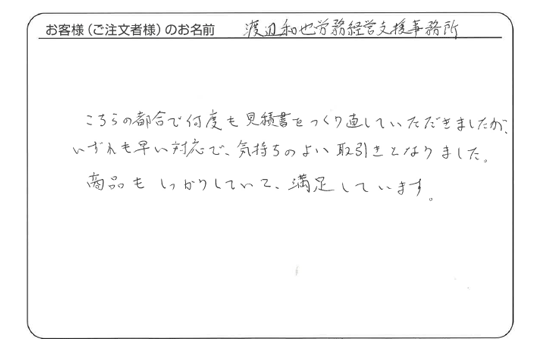 お客様（ご注文者様）のお名前 渡辺和也労務経営支援事務所
こちらの都合で何度も見積書をつくり直していただきましたが、
いずれも早い対応で、気持ちのよい取引きとなりました。
商品もしっかりしていて、満足しています。